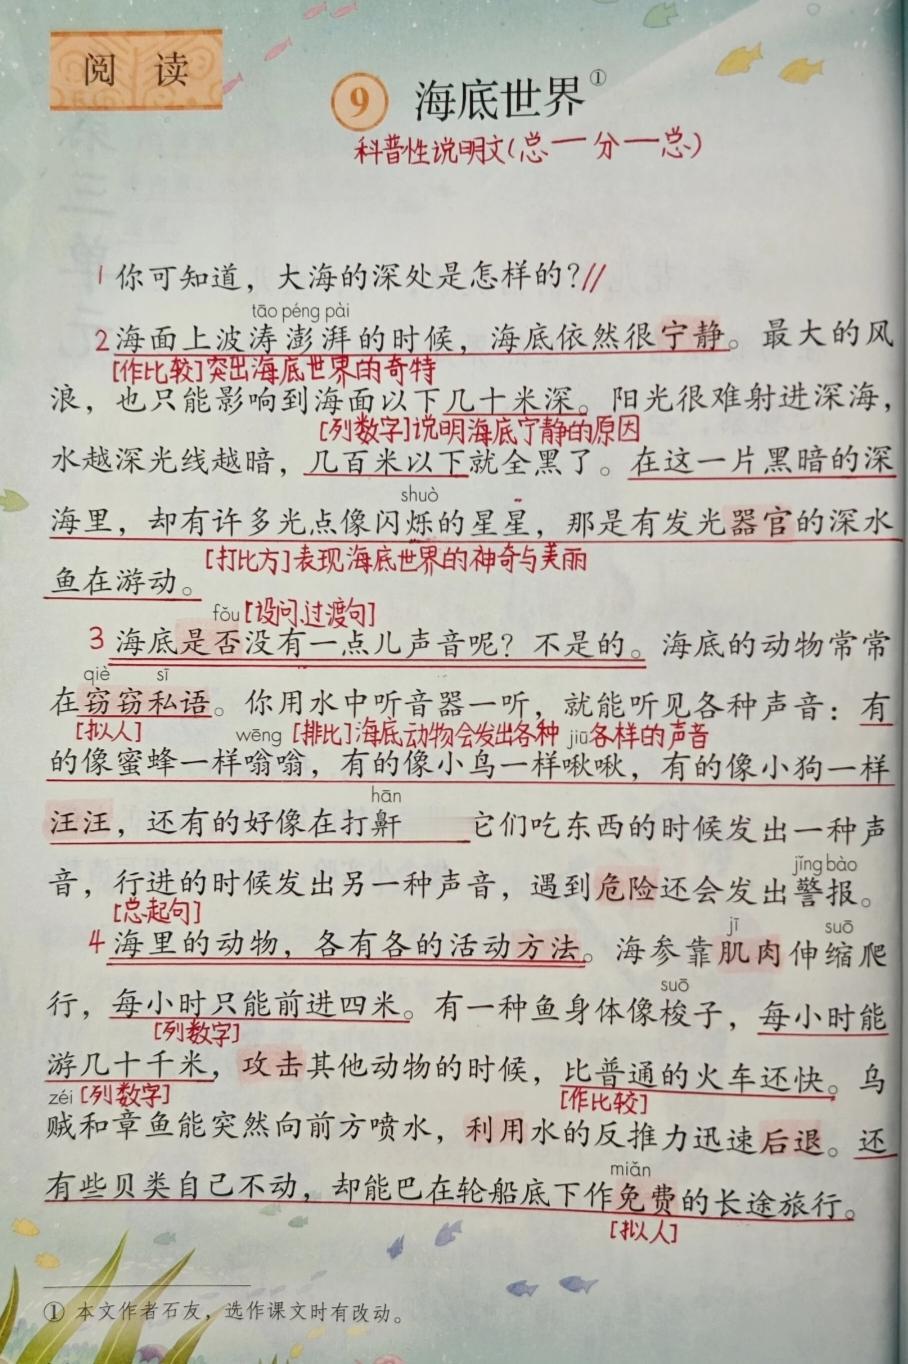 阅 读
9 海底世界①
科普性说明文(总一分一总)
1 你可知道，大海的深处是怎样的?//
tāo péng pài
2 海面上波涛澎湃的时候，海底依然很宁静。最大的风
[作比较]突出海底世界的奇特
浪，也只能影响到海面以下几十米深。阳光很难射进深海，
[列数字]说明海底宁静的原因
水越深光线越暗，几百米以下就全黑了。在这一片黑暗的深
shuò
海里，却有许多光点像闪烁的星星，那是有发光器官的深水
[打比方]表现海底世界的神奇与美丽
鱼在游动。
fǒu [设问、过渡句]
3 海底是否没有一点儿声音呢？不是的。海底的动物常常
qiè sī
在窃窃私语。你用水中听音器一听，就能听见各种声音：有
[拟人] wēng [排比]海底动物会发出各种 jiū 各样的声音
的像蜜蜂一样嗡嗡，有的像小鸟一样啾啾，有的像小狗一样
hān
汪汪，还有的好像在打鼾 它们吃东西的时候发出一种声
jǐng bào
音，行进的时候发出另一种声音，遇到危险还会发出警报。
[总起句] jī suō
4 海里的动物，各有各的活动方法。海参靠肌肉伸缩爬
suō
行，每小时只能前进四米。有一种鱼身体像梭子，每小时能
[列数字]
游几十千米，攻击其他动物的时候，比普通的火车还快。乌
zéi [列数字] [作比较]
贼和章鱼能突然向前方喷水，利用水的反推力迅速后退。还
miǎn
有些贝类自己不动，却能巴在轮船底下作免费的长途旅行。
[拟人]
① 本文作者石友，选作课文时有改动。